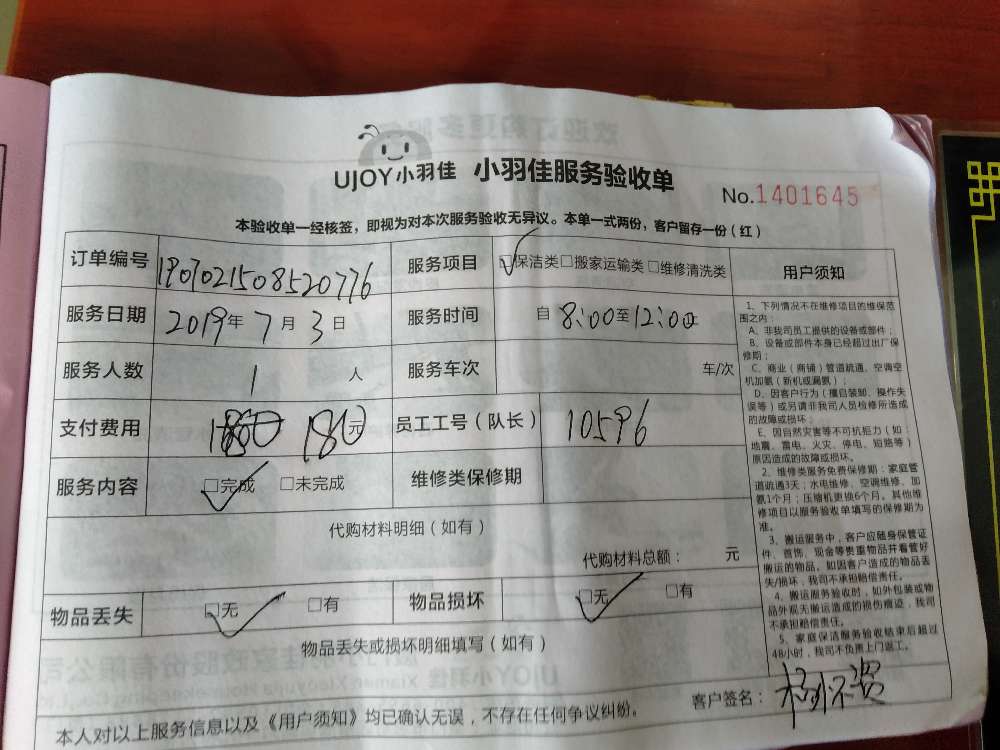 UJOY小羽佳 小羽佳服务验收单
No.1401645
本验收单一经核签，即视为对本次服务验收无异议。本单一式两份，客户留存一份（红）
订单编号 1907021508520776 服务项目 ☑保洁类□搬家运输类□维修清洗类 用户须知
服务日期 2019年7月3日 服务时间 自8:00至12:00止
服务人数 1 人 服务车次 车/次
支付费用 180元 员工工号（队长） 10596
服务内容 ☑完成 □未完成 维修类保修期
代购材料明细（如有）
代购材料总额： 元
物品丢失 ☑无 □有 物品损坏 ☑无 □有
物品丢失或损坏明细填写（如有）
客户签名：
本人对以上服务信息以及《用户须知》均已确认无误，不存在任何争议纠纷。
1、下列情况不在维修项目的维保范
围之内：
A、非我司员工提供的设备或部件；
B、设备或部件本身已经超过出厂保
修期；
C、商业（商铺）管道疏通、空调空
机加氨（新机或漏氨）；
D、因客户行为（擅自装卸、操作失
误等）或另请非我司人员检修所造成
的故障或损坏；
E、因自然灾害等不可抗拒力（如：
地震、雷电、火灾、停电、短路等）
原因造成的故障或损坏。
2、维修类服务免费保修期：家庭管
道疏通3天；水电维修、空调维修、加
氨1个月；压缩机更换6个月。其他维
修项目以服务验收单填写的保修期为
准。
3、搬运服务中，客户应随身保管证
件、首饰、现金等贵重物品并看管好
搬运的物品。如因客户造成的物品丢
失/损坏，我司不承担赔偿责任。
4、搬运服务验收时，如外包装或物
品外观无搬运造成的损伤痕迹，我司
不承担赔偿责任。
5、家庭保洁服务验收结束后超过
48小时，我司不负责上门返工。